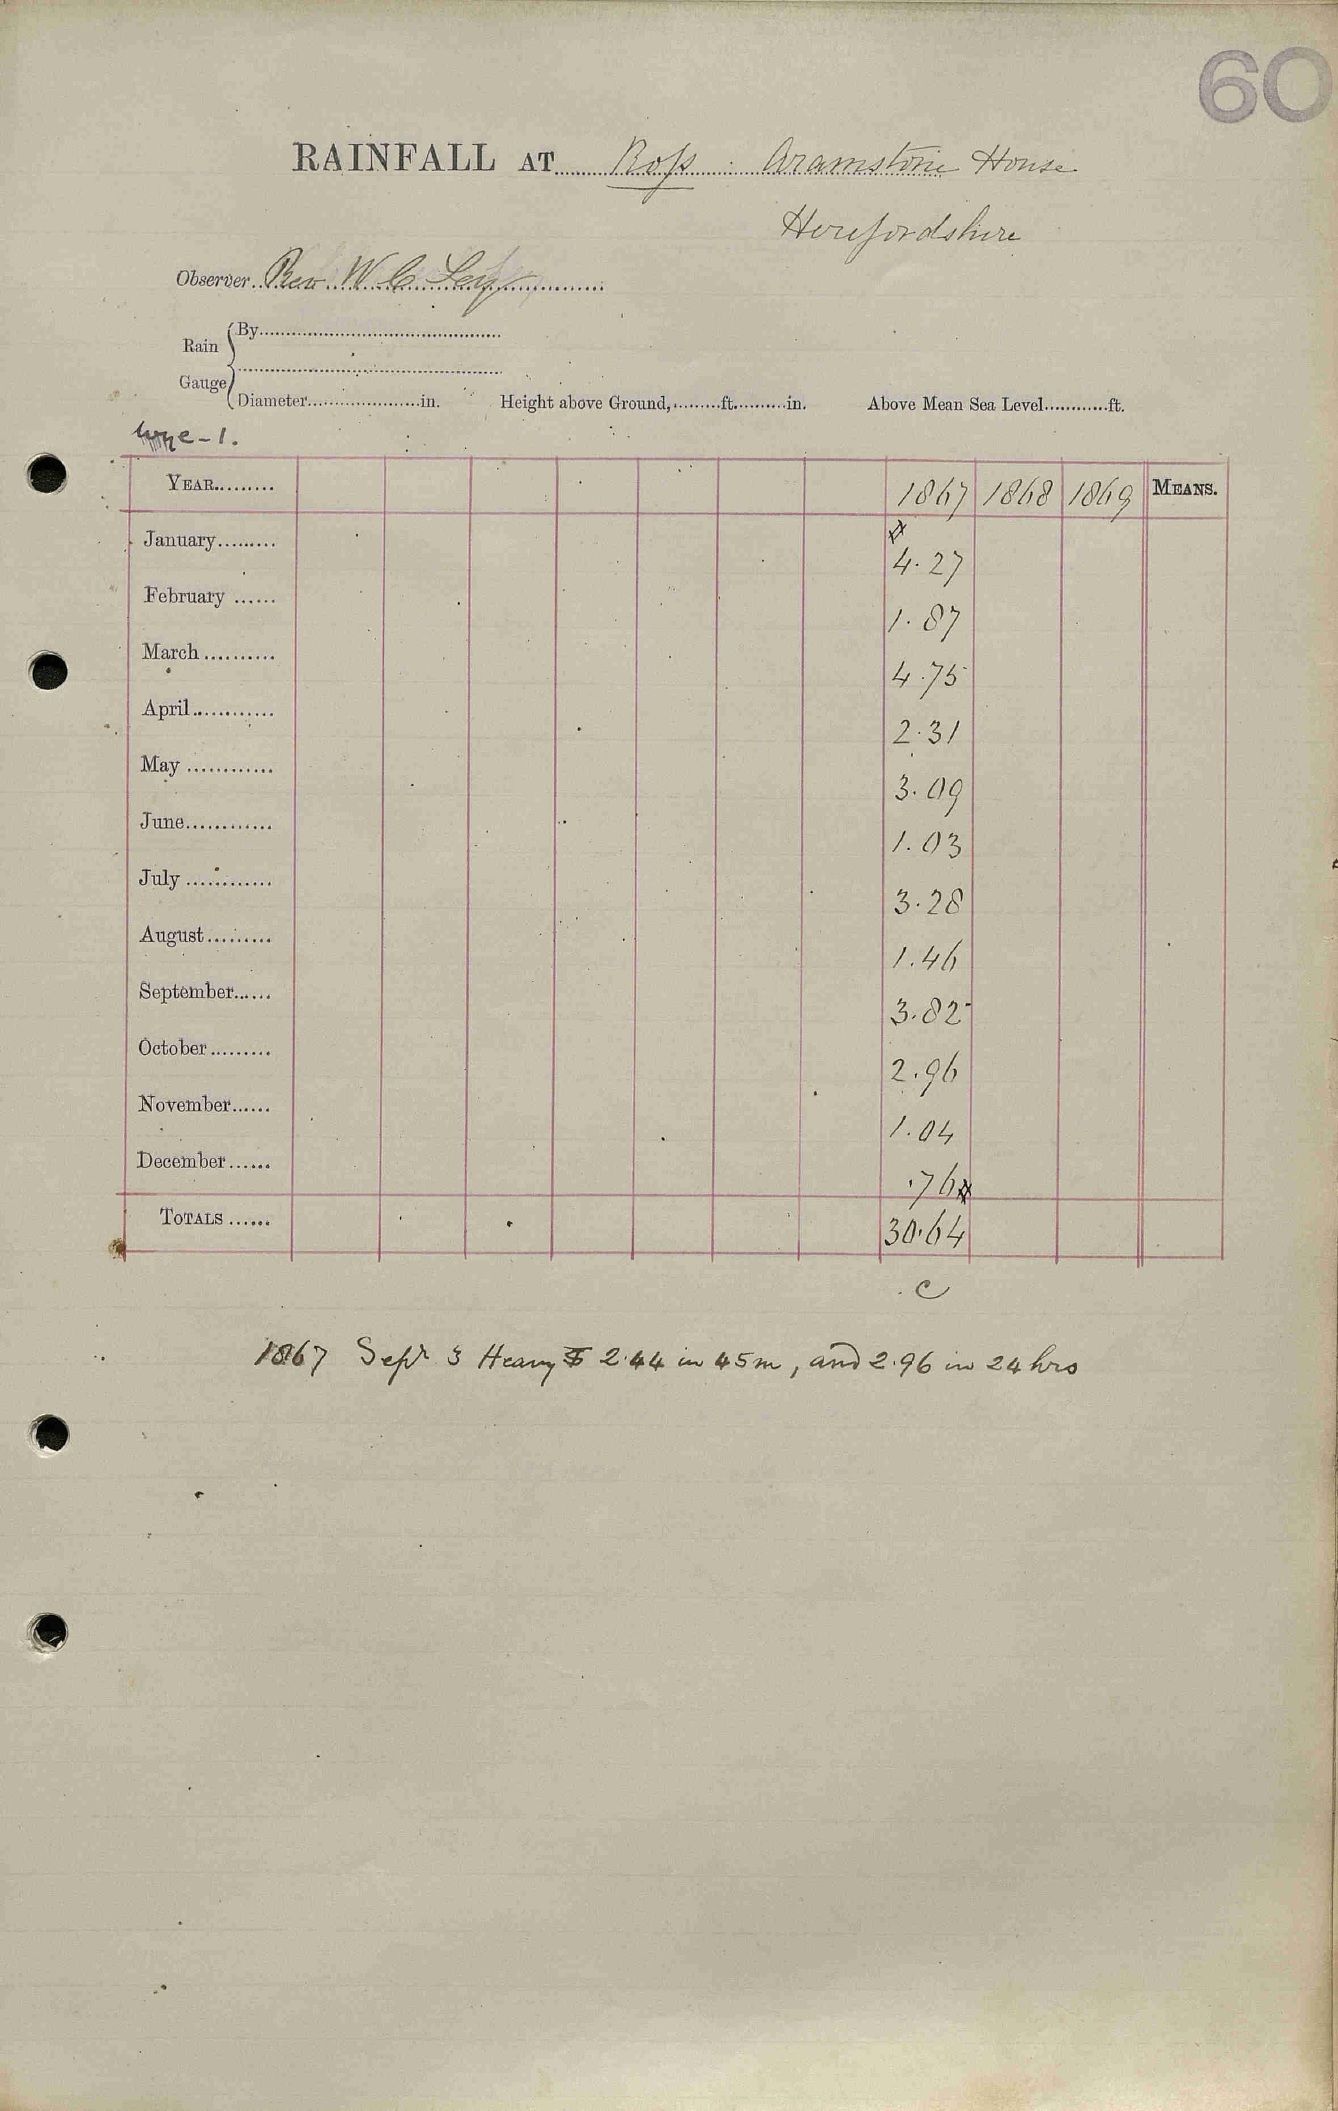 60
RAINFALL AT Ross. Aramstone House
Herefordshire
Observer Rev. W C Ley
Rain Gauge
By
Diameter in. Height above Ground, ft. in. Above Mean Sea Level ft.
Wye - 1.
YEAR 1867 1868 1869 MEANS.
January 4.27
February 1.87
March 4.75
April 2.31
May 3.09
June 1.03
July 3.28
August 1.46
September 3.82
October 2.96
November 1.04
December .76
TOTALS 30.64
C
1867 Sept 3 Heavy 2.44 in 45m, and 2.96 in 24 hrs